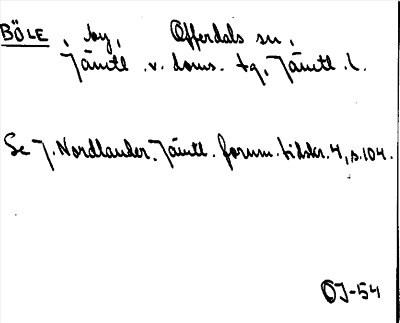 BÖLE, by, Offerdals sn,
Jämtl. v. doms. tg, Jämtl. l.
Se J. Nordlander. Jämtl. fornm. tidskr. 4, s. 104.
OJ-54